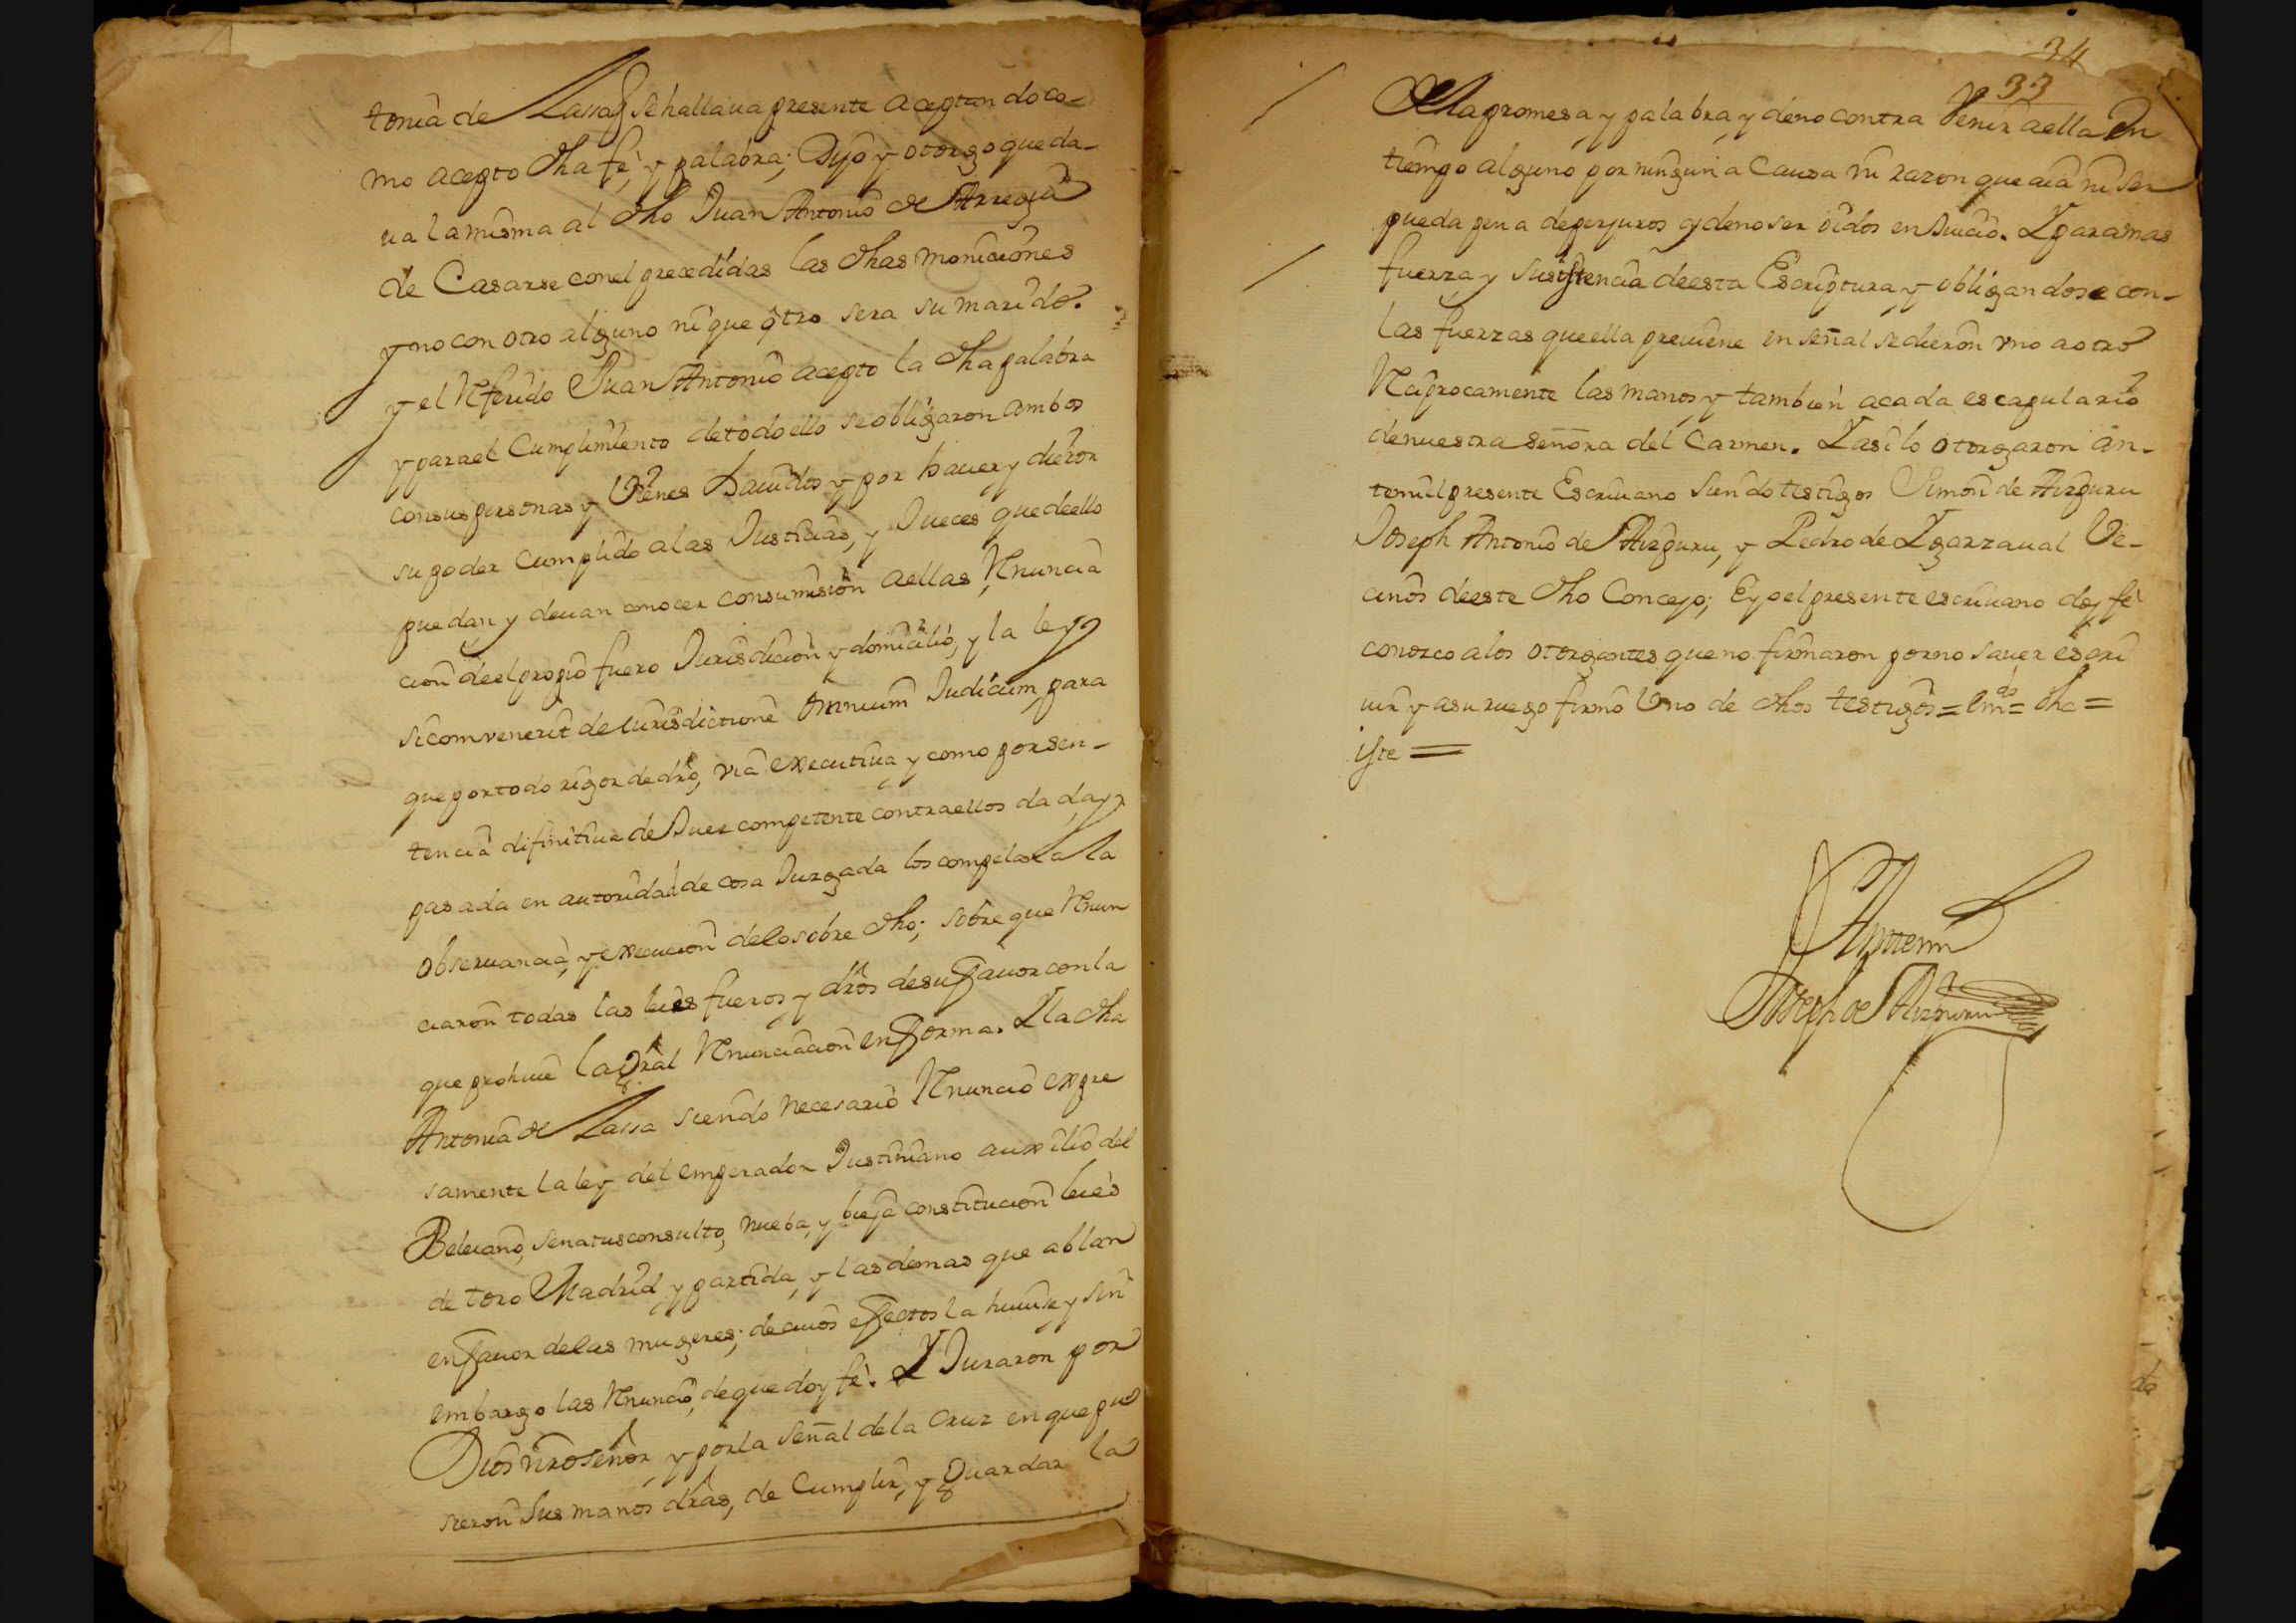 tonia de Lassa q̃ se hallaua presente aceptando co-
mo acepto dha fè, y palabra; Dijo y otorgo que da-
ua la misma al dho Juan Antonio de Arregui
de Casarse con el precedidas las dhas moniciones
y no con otro alguno ni que otro sera su marido.
y el Referido Juan Antonio acepto la dha palabra
y para el Cumplimiento de todo ello se obligaron ambos
con sus personas y Vienes hauidos y por hauer y dieron
su poder cumplido a las Justicias, y Jueces que de ello
puedan y deuan conocer con sumision a ellas, Renuncia
cion de el propio fuero Jurisdicion y domicilio, y la ley
si comvenerit de iurisdictione omnium Judicum, para
que por todo rigor de dro, via executiua y como por sen-
tencia difinitiua de Juez competente contra ellos dada, y
pasada en autoridad de cosa Juzgada los compelan a la
obseruancia, y execucion de lo sobre dho; sobre que Renun
ciaron todas las leies fueros y dros de su fauor con la
que prohiue la gral Renunciacion en forma. Y la dha
Antonia de Lassa siendo necesario Renuncio expre
samente la ley del emperador Justiniano auxilio del
Beleiano, senatus consulto, nueba, y bieja constitucion leies
de toro Madrid y partida, y las demas que ablan
en fauor de las mugeres; de cuios effectos la hiuise y sin
embargo las Renuncio, de que doy fè. Y Juraron por
Dios nro señor, y por la señal de la Cruz en que pu
sieron sus manos dras, de Cumplir, y Guardar la
34
33
dha promesa y palabra, y de no contra Venir a ella en
tiempo alguno por ninguna Causa ni razon que aia ni ser
pueda pena de perjuros y de no ser oidos en Juicio. Y para mas
fuerza y susistencia de esta Escriptura y obligandose con-
las fuerzas que ella preuiene en señal se dieron vno a otro
Reciprocamente las manos y tambien a cada escapulario
de nuestra señora del Carmen. Y asi lo otorgaron an-
temi el presente Escriuano siendo testigos Simon de Aizpuru
Joseph Antonio de Aizpuru, y Pedro de Ygarzaual Ve-
cinos de este dho Concejo; E yo el presente escriuano doy fè
conozco a los otorgantes que no firmaron por no sauer escri
uir y a su ruego firmo Vno de dhos testigos = emdo = dha =
iste =
Antemi
Joseph de Aizpuru